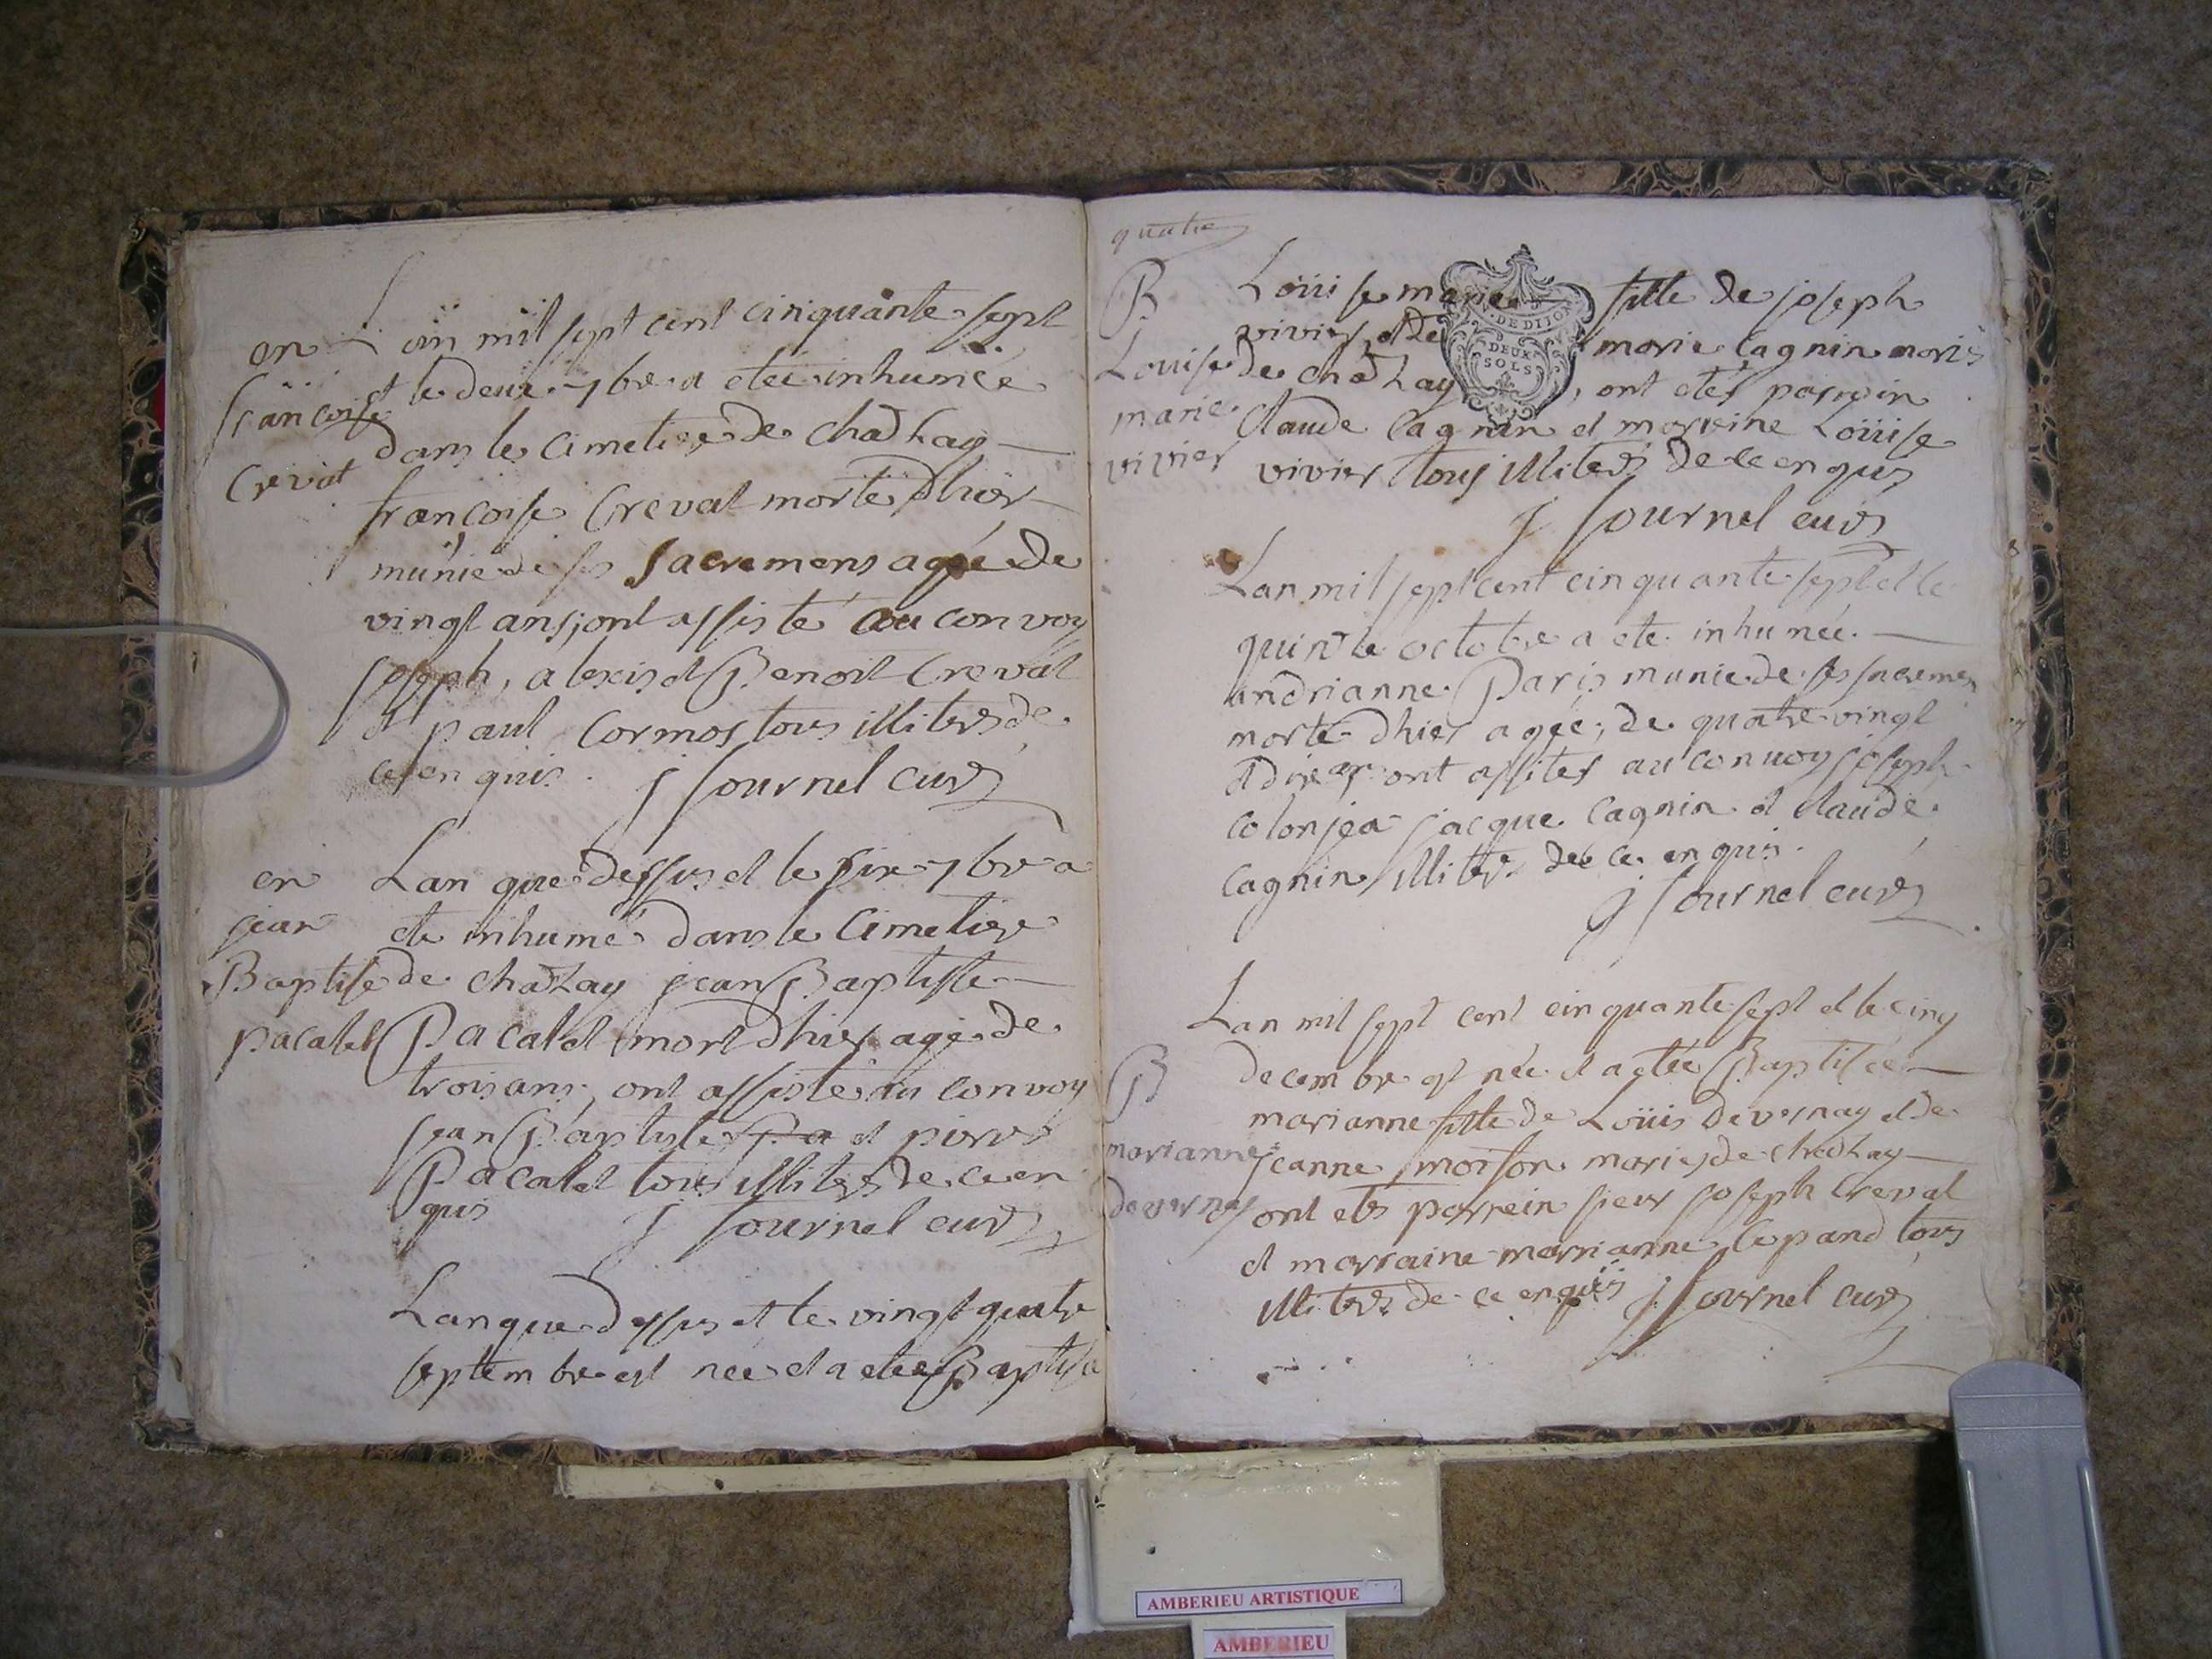 en Lan mil sept cent cinquante sept
francoise et le deux 7bre a etée inhumée
Crevat dans le Cimetiere de chazay
francoise Crevat morte dhier
munie de ses sacremens agée de
vingt ans, ont assisté au convoy
joseph, alexis et Benoit Crevat
et paul Cormos tous illitres de
ce en quis. j journel curé
en Lan que dessus et le six 7bre a
jean eté inhumé dans le Cimetiere
Baptise de chazay jean Baptiste
pacalet Pacalet mort dhier agé de
trois ans, ont assisté au convoy
jean Baptiste et pierre
Pacalet tous illitres de ce en
quis j journel curé
Lan que dessus et le vingt quatre
septembre est née et a etée Baptise
quatre
B Loüise marie fille de joseph
vivier et de marie Cagnin mariés
Louise de chazay, ont etés parrein
marie Claude Cagnin et marreine Loüise
vivier vivier tous illitrés de ce enquis
j journel curé
GEN. DE DIJON
DEUX
SOLS
Lan mil sept cent cinquante sept et le
quinze octobre a eté inhumée
andrianne Paris munie de ses sacremens
morte dhier agée, de quatre vingt
ont assites au convoy joseph
colonjea jacque Cagnin et Claude
Cagnin illitrés de ce enquis.
j journel curé
Lan mil sept cent cinquante sept et le cinq
B decembre est née et a etée Baptisée
marianne fille de Loüis devernay et de
marianne jeanne moison mariés de chazay
devernay ont etés parrein sieur joseph Crevat
et marraine marrianne Cepand tous
illitrés de ce enquis j journel curé
AMBERIEU ARTISTIQUE
AMBERIEU